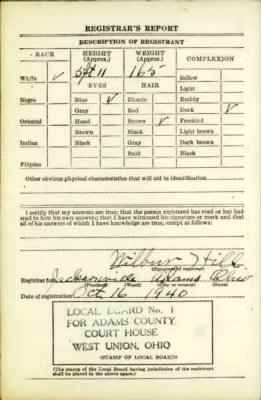 REGISTRAR'S REPORT
DESCRIPTION OF REGISTRANT
RACE HEIGHT (Approx.) WEIGHT (Approx.) COMPLEXION
White ✓ 5 ft 11 165 Sallow
EYES HAIR Light
Negro Blue ✓ Blonde Ruddy
Gray Red Dark ✓
Oriental Hazel Brown ✓ Freckled
Brown Black Light brown
Indian Black Gray Dark brown
Bald Black
Filipino
Other obvious physical characteristics that will aid in identification
I certify that my answers are true; that the person registered has read or has had
read to him his own answers; that I have witnessed his signature or mark and that
all of his answers of which I have knowledge are true, except as follows:
Wilbur
(Signature of registrar)
Registrar for Jacksonville Adams Ohio
(Precinct) (Ward)
Date of registration Oct 16 1940
LOCAL BOARD No. 1
FOR ADAMS COUNTY
COURT HOUSE
WEST UNION, OHIO
(STAMP OF LOCAL BOARD)
(The stamp of the Local Board having jurisdiction of the registrant
shall be placed in the above space.)